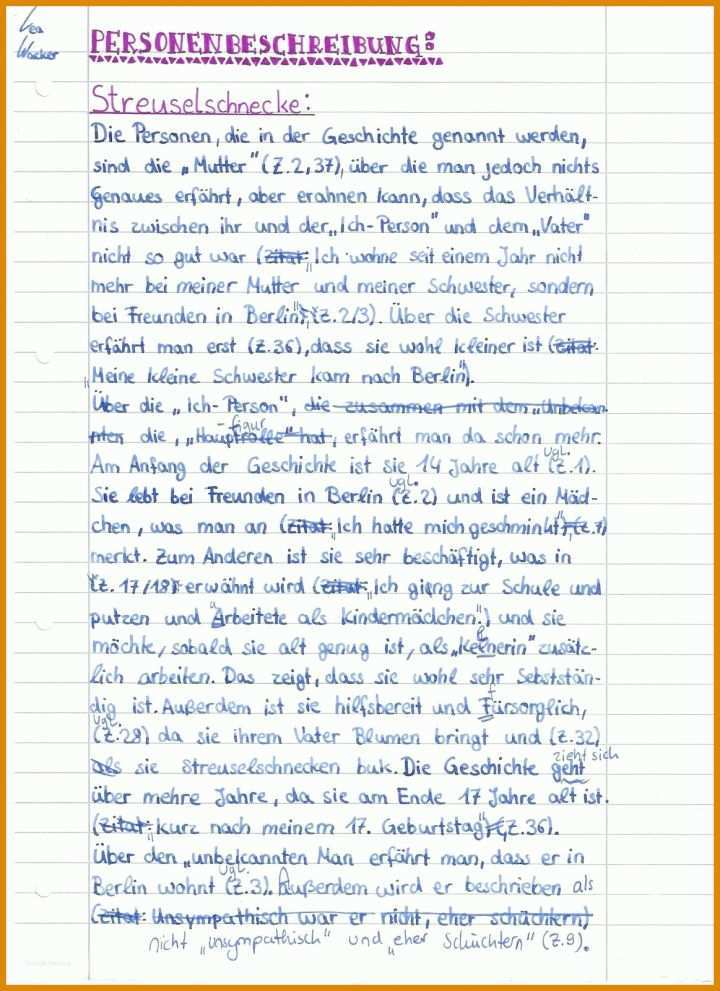 Lea
Wacker
PERSONENBESCHREIBUNG:
Streuselschnecke:
Die Personen, die in der Geschichte genannt werden,
sind die „Mutter" (Z.2,37), über die man jedoch nichts
Genaues erfährt, aber erahnen kann, dass das Verhält-
nis zwischen ihr und der „Ich-Person" und dem „Vater"
nicht so gut war (Zitat: „Ich wohne seit einem Jahr nicht
mehr bei meiner Mutter und meiner Schwester, sondern
bei Freunden in Berlin" (Z.2/3). Über die Schwester
erfährt man erst (Z.36), dass sie wohl kleiner ist (Zitat:
„Meine kleine Schwester kam nach Berlin").
Über die „Ich-Person", die zusammen mit dem „Unbekan
nten die, „Hauptrolle" hat, -figur erfährt man da schon mehr.
Am Anfang der Geschichte ist sie 14 Jahre alt (vgl. Z.1).
Sie lebt bei Freunden in Berlin (vgl. Z.2) und ist ein Mäd-
chen, was man an (Zitat: „Ich hatte mich geschminkt", (Z.7)
merkt. Zum Anderen ist sie sehr beschäftigt, was in
(Z. 17/18) erwähnt wird (Zitat: „Ich gieng zur Schule und
putzen und Arbeitete als Kindermädchen.") und sie
möchte, sobald sie alt genug ist, als „Kelnerin" zusätz-
lich arbeiten. Das zeigt, dass sie wohl sehr Sebststän-
dig ist. Außerdem ist sie hilfsbereit und Fürsorglich,
(vgl. Z.28) da sie ihrem Vater Blumen bringt und (Z.32)
als sie Streuselschnecken buk. Die Geschichte geht zieht sich
über mehre Jahre, da sie am Ende 17 Jahre alt ist.
(Zitat: Kurz nach meinem 17. Geburtstag" (Z.36).
Über den „unbekannten Man erfährt man, dass er in
Berlin wohnt (vgl. Z.3). Außerdem wird er beschrieben als
(Zitat: Unsympathisch war er nicht, eher schüchtern)
nicht „unsympathisch" und „eher Schüchtern" (Z.9).